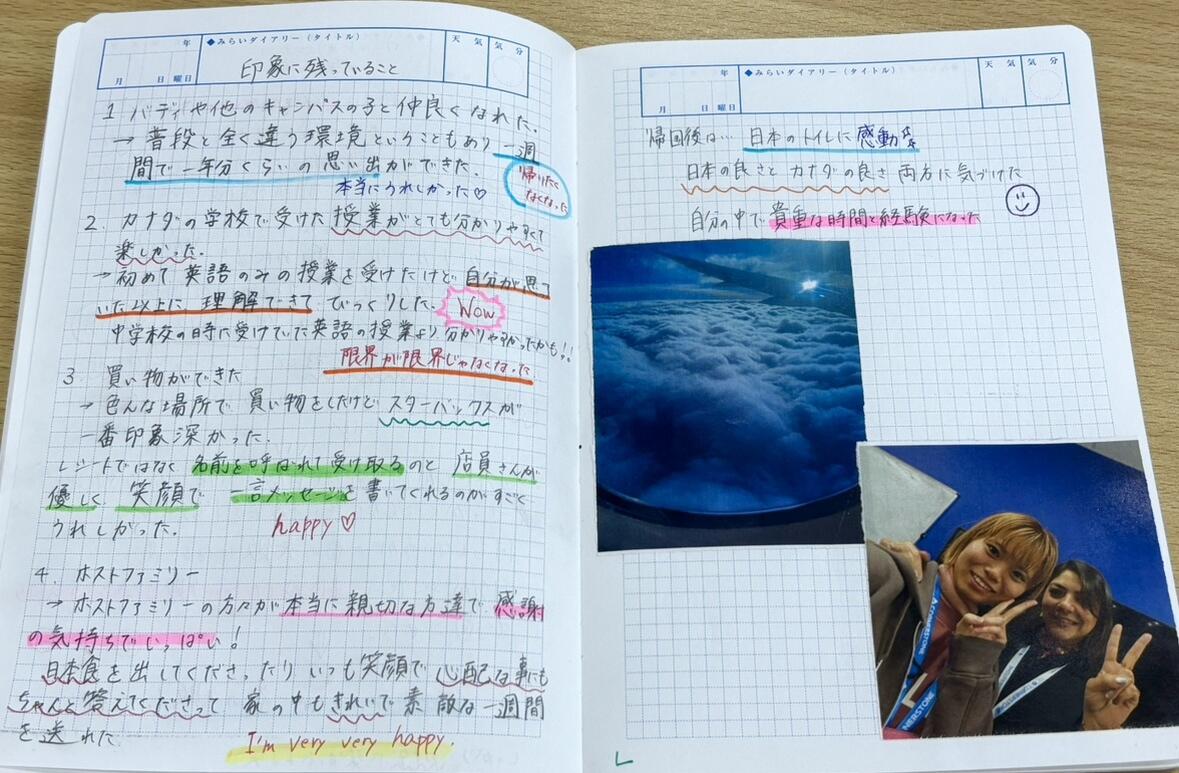 年
◆みらいダイアリー(タイトル)
天 気
気 分
月 日 曜日
印象に残っていること
1 バディや他のキャンパスの子と仲良くなれた.
→ 普段と全く違う環境ということもあり 一週
間で一年分くらいの思い出ができた.
本当にうれしかった♡
帰りたく
なくなった
2 カナダの学校で受けた授業がとても分かりやすくて
楽しかった.
→ 初めて英語のみの授業を受けたけど自分が思って
いた以上に理解できて びっくりした.
Wow
中学校の時に受けていた英語の授業より分かりやすかったかも!!
限界が限界じゃなくなった
3 買い物ができた
→ 色んな場所で 買い物をしたけど スターバックスが
一番印象深かった.
レシートではなく 名前を呼ばれて受け取るのと 店員さんが
優しく 笑顔で 一言メッセージを書いてくれるのがすごく
うれしかった.
happy ♡
4. ホストファミリー
→ ホストファミリーの方々が本当に親切な方達で 感謝
の気持ちでいっぱい!
日本食を出してくださったり いつも笑顔で 心配な事にも
ちゃんと答えてくださって 家の中もきれいで素敵な一週間
を送れた.
I'm very very happy.
年
◆みらいダイアリー(タイトル)
天 気
気 分
月 日 曜日
帰国後は… 日本のトイレに感動
日本の良さとカナダの良さ 両方に気づけた
自分の中で貴重な時間と経験になった
CORNERSTONE
NERSTONE